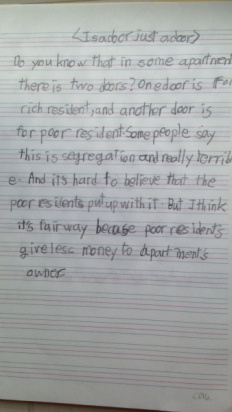 <Is a door just a door>
Do you know that in some apartment
there is two doors? One door is for
rich resident, and another door is
for poor resident. Some people say
this is segregation and really terribl
e. And it's hard to believe that the
poor residents put up with it. But I think
it's fair way because poor residents
give less money to apartments
owner.